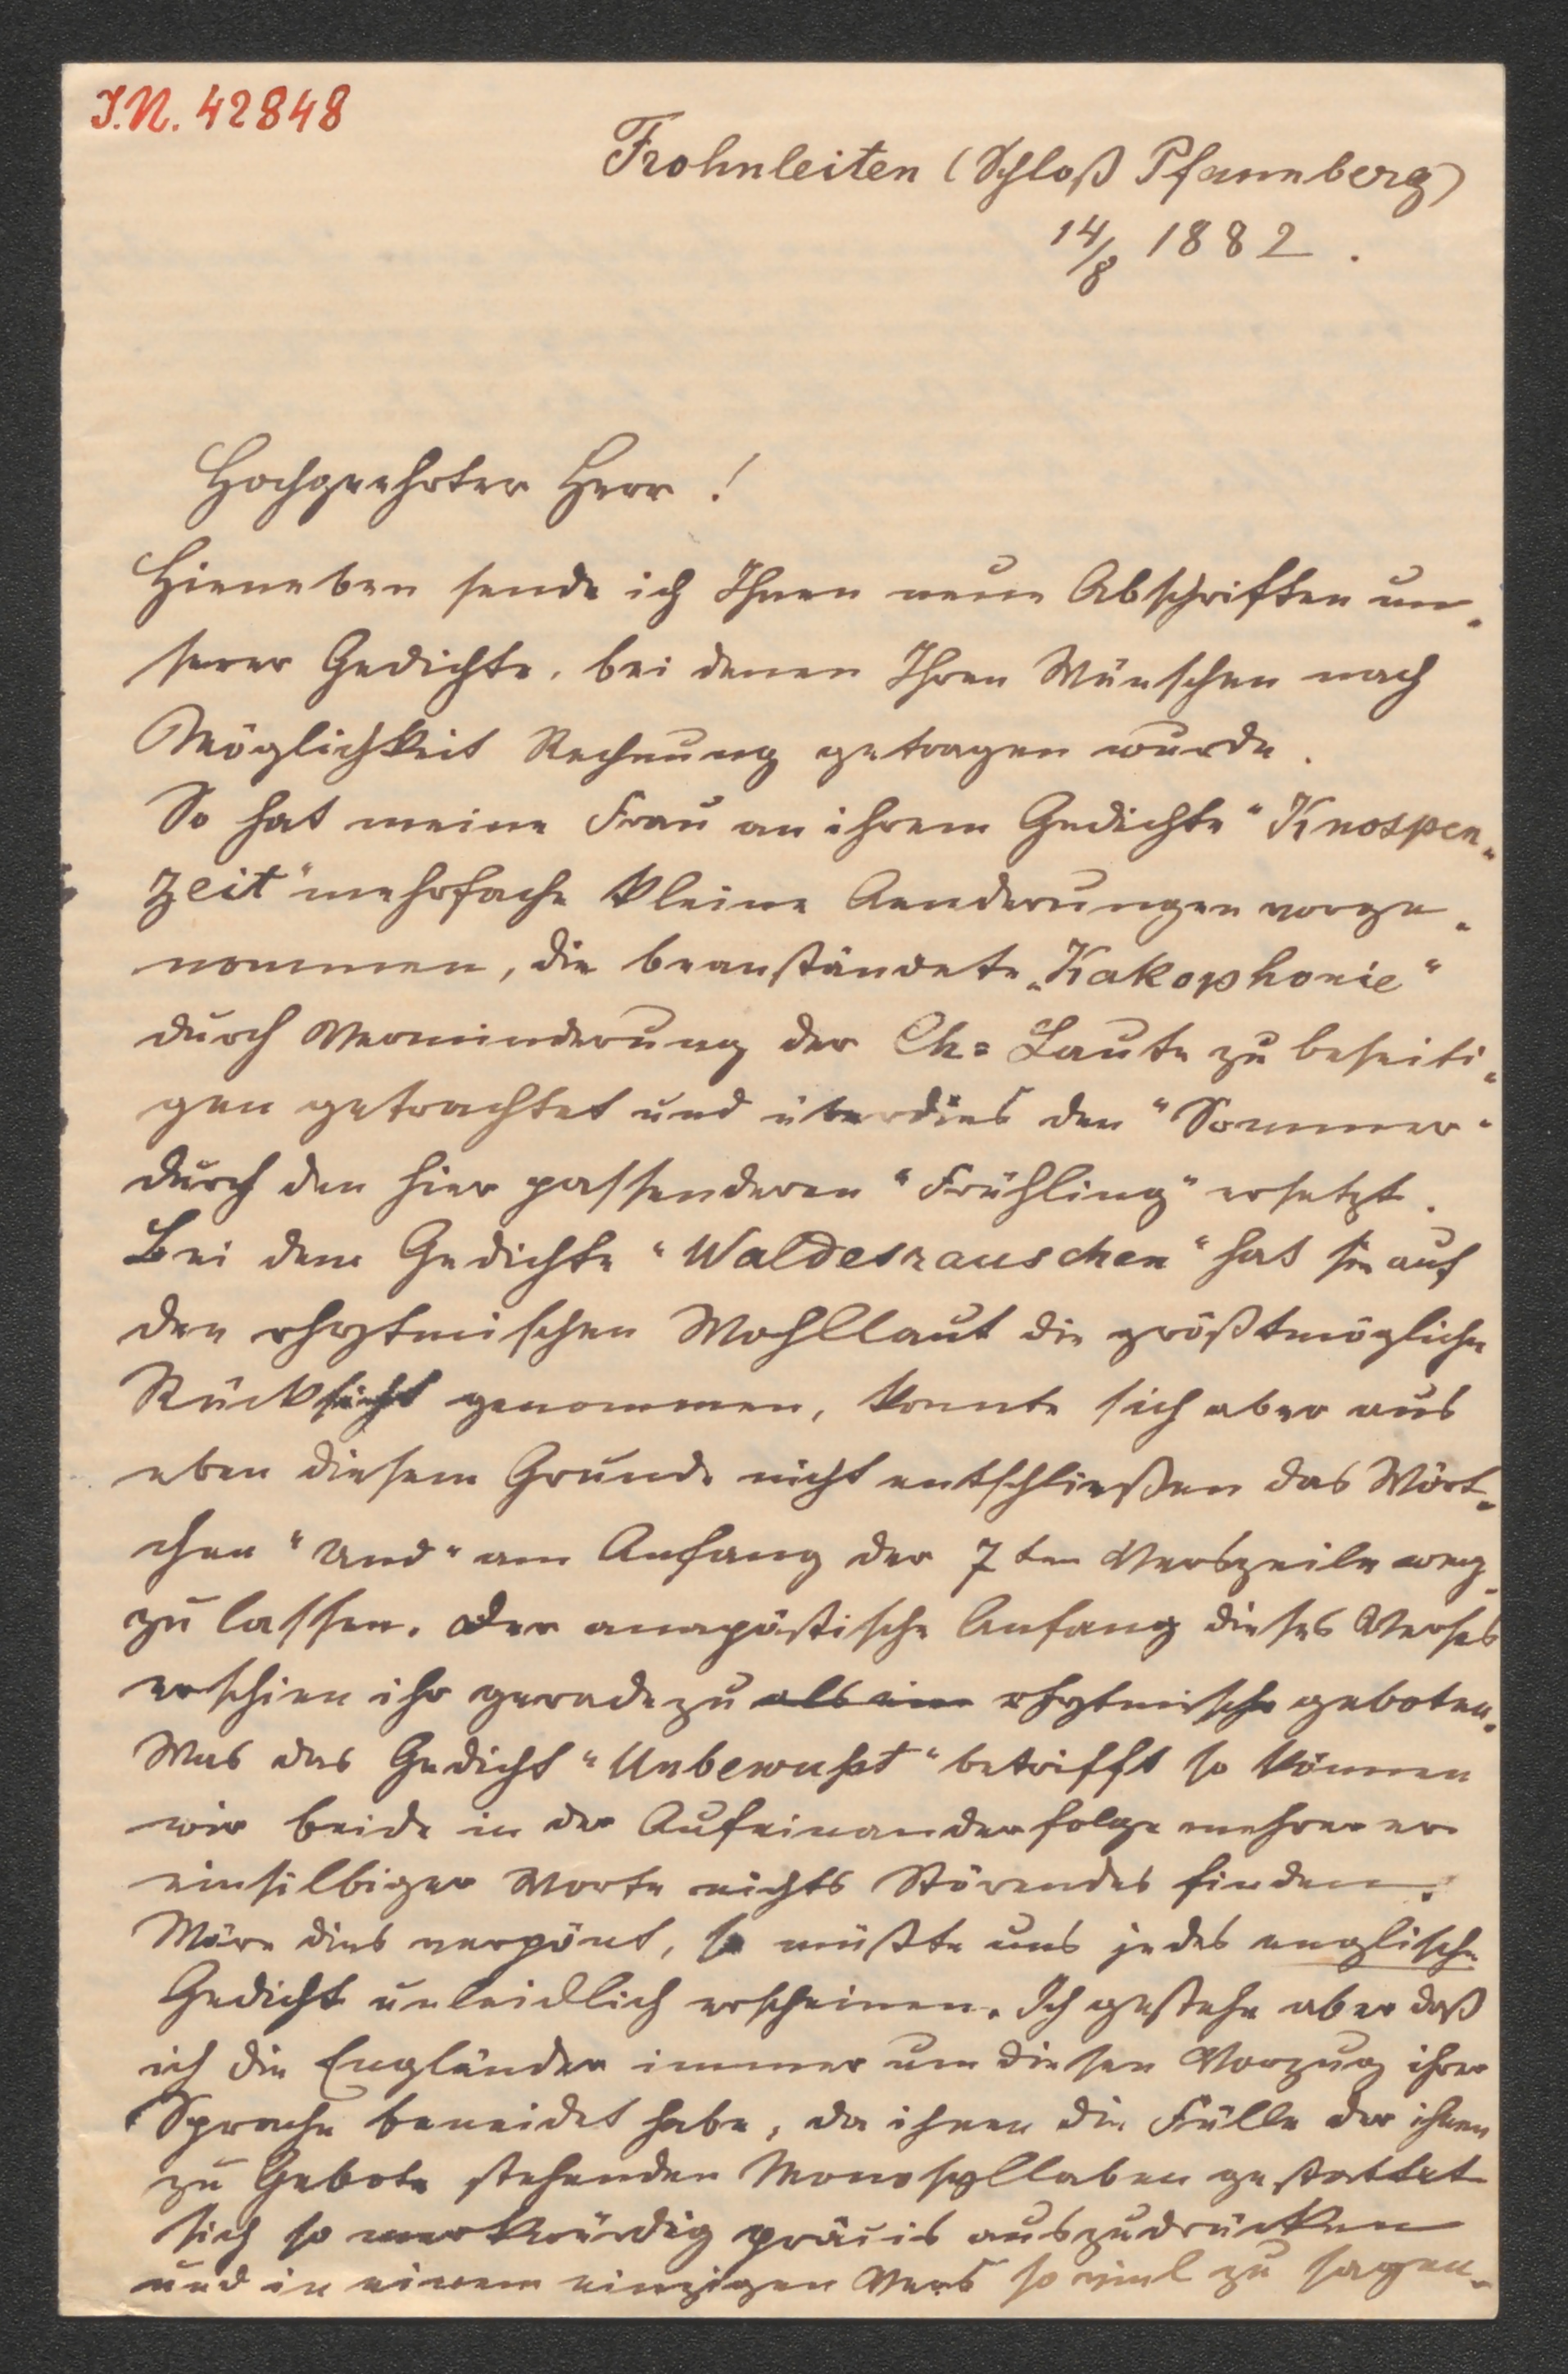 I.N. 42848
Frohnleiten (Schloß Pfannberg)
14/8 1882.
Hochgeehrter Herr!
Hieneben sende ich Ihnen neue Abschriften un-
serer Gedichte, bei denen Ihren Wünschen nach
Möglichkeit Rechnung getragen wurde.
So hat meine Frau an ihrem Gedichte "Knospen-
zeit" mehrfache kleine Aenderungen vorge-
nommen, die beanständete „Kakophonie"
durch Verminderung der Ch-Laute zu beseiti-
gen getrachtet und überdies den "Sommer"
durch den hier passenderen "Frühling" ersetzt.
Bei dem Gedichte "Waldesrauschen" hat sie auf
den rhytmischen Wohllaut die größtmögliche
Rücksicht genommen, konnte sich aber aus
eben diesem Grunde nicht entschließen das Wört-
chen "Und" am Anfang der 7ten Verszeile weg-
zu lassen. Der anapästische Anfang dieses Verses
erschien ihr geradezu als ein rhytmisch geboten.
Was das Gedicht "Unbewußt" betrifft so können
wir beide in der Aufeinanderfolge mehrerer
einsilbiger Worte nichts Störendes finden.
Wäre dies verpönt, so müßte uns jedes englische
Gedicht unleidlich erscheinen. Ich gestehe aber daß
ich die Engländer immer um diesen Vorzug ihrer
Sprache beneidet habe, da ihnen die Fülle der ihnen
zu Gebote stehenden Monosyllaben gestattet
sich so merkwürdig präcis auszudrücken
und in einem einzigen Vers so viel zu sagen.